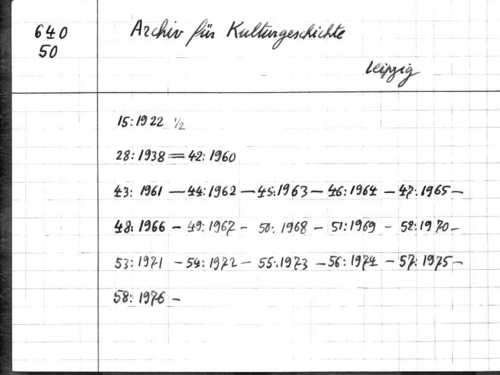 640
50
Archiv für Kulturgeschichte
Leipzig
15:1922 1/2
28:1938 = 42:1960
43: 1961 — 44:1962 — 45:1963 — 46:1964 — 47:1965 —
48:1966 — 49:1967 — 50:1968 — 51:1969 — 52:1970 —
53:1971 — 54:1972 — 55:1973 — 56:1974 — 57:1975 —
58:1976 —